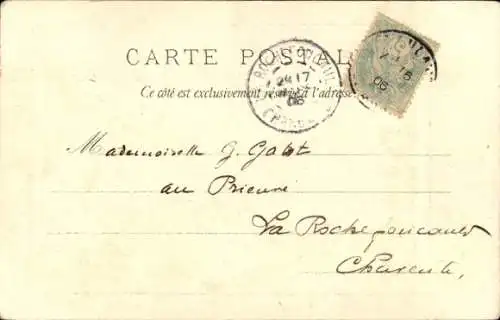 CARTE POSTALE
Ce côté est exclusivement réservé à l'adresse
Mademoiselle G. Gabt
au Prieuré
La Rochefoucauld
Charente,
17
06
16
06